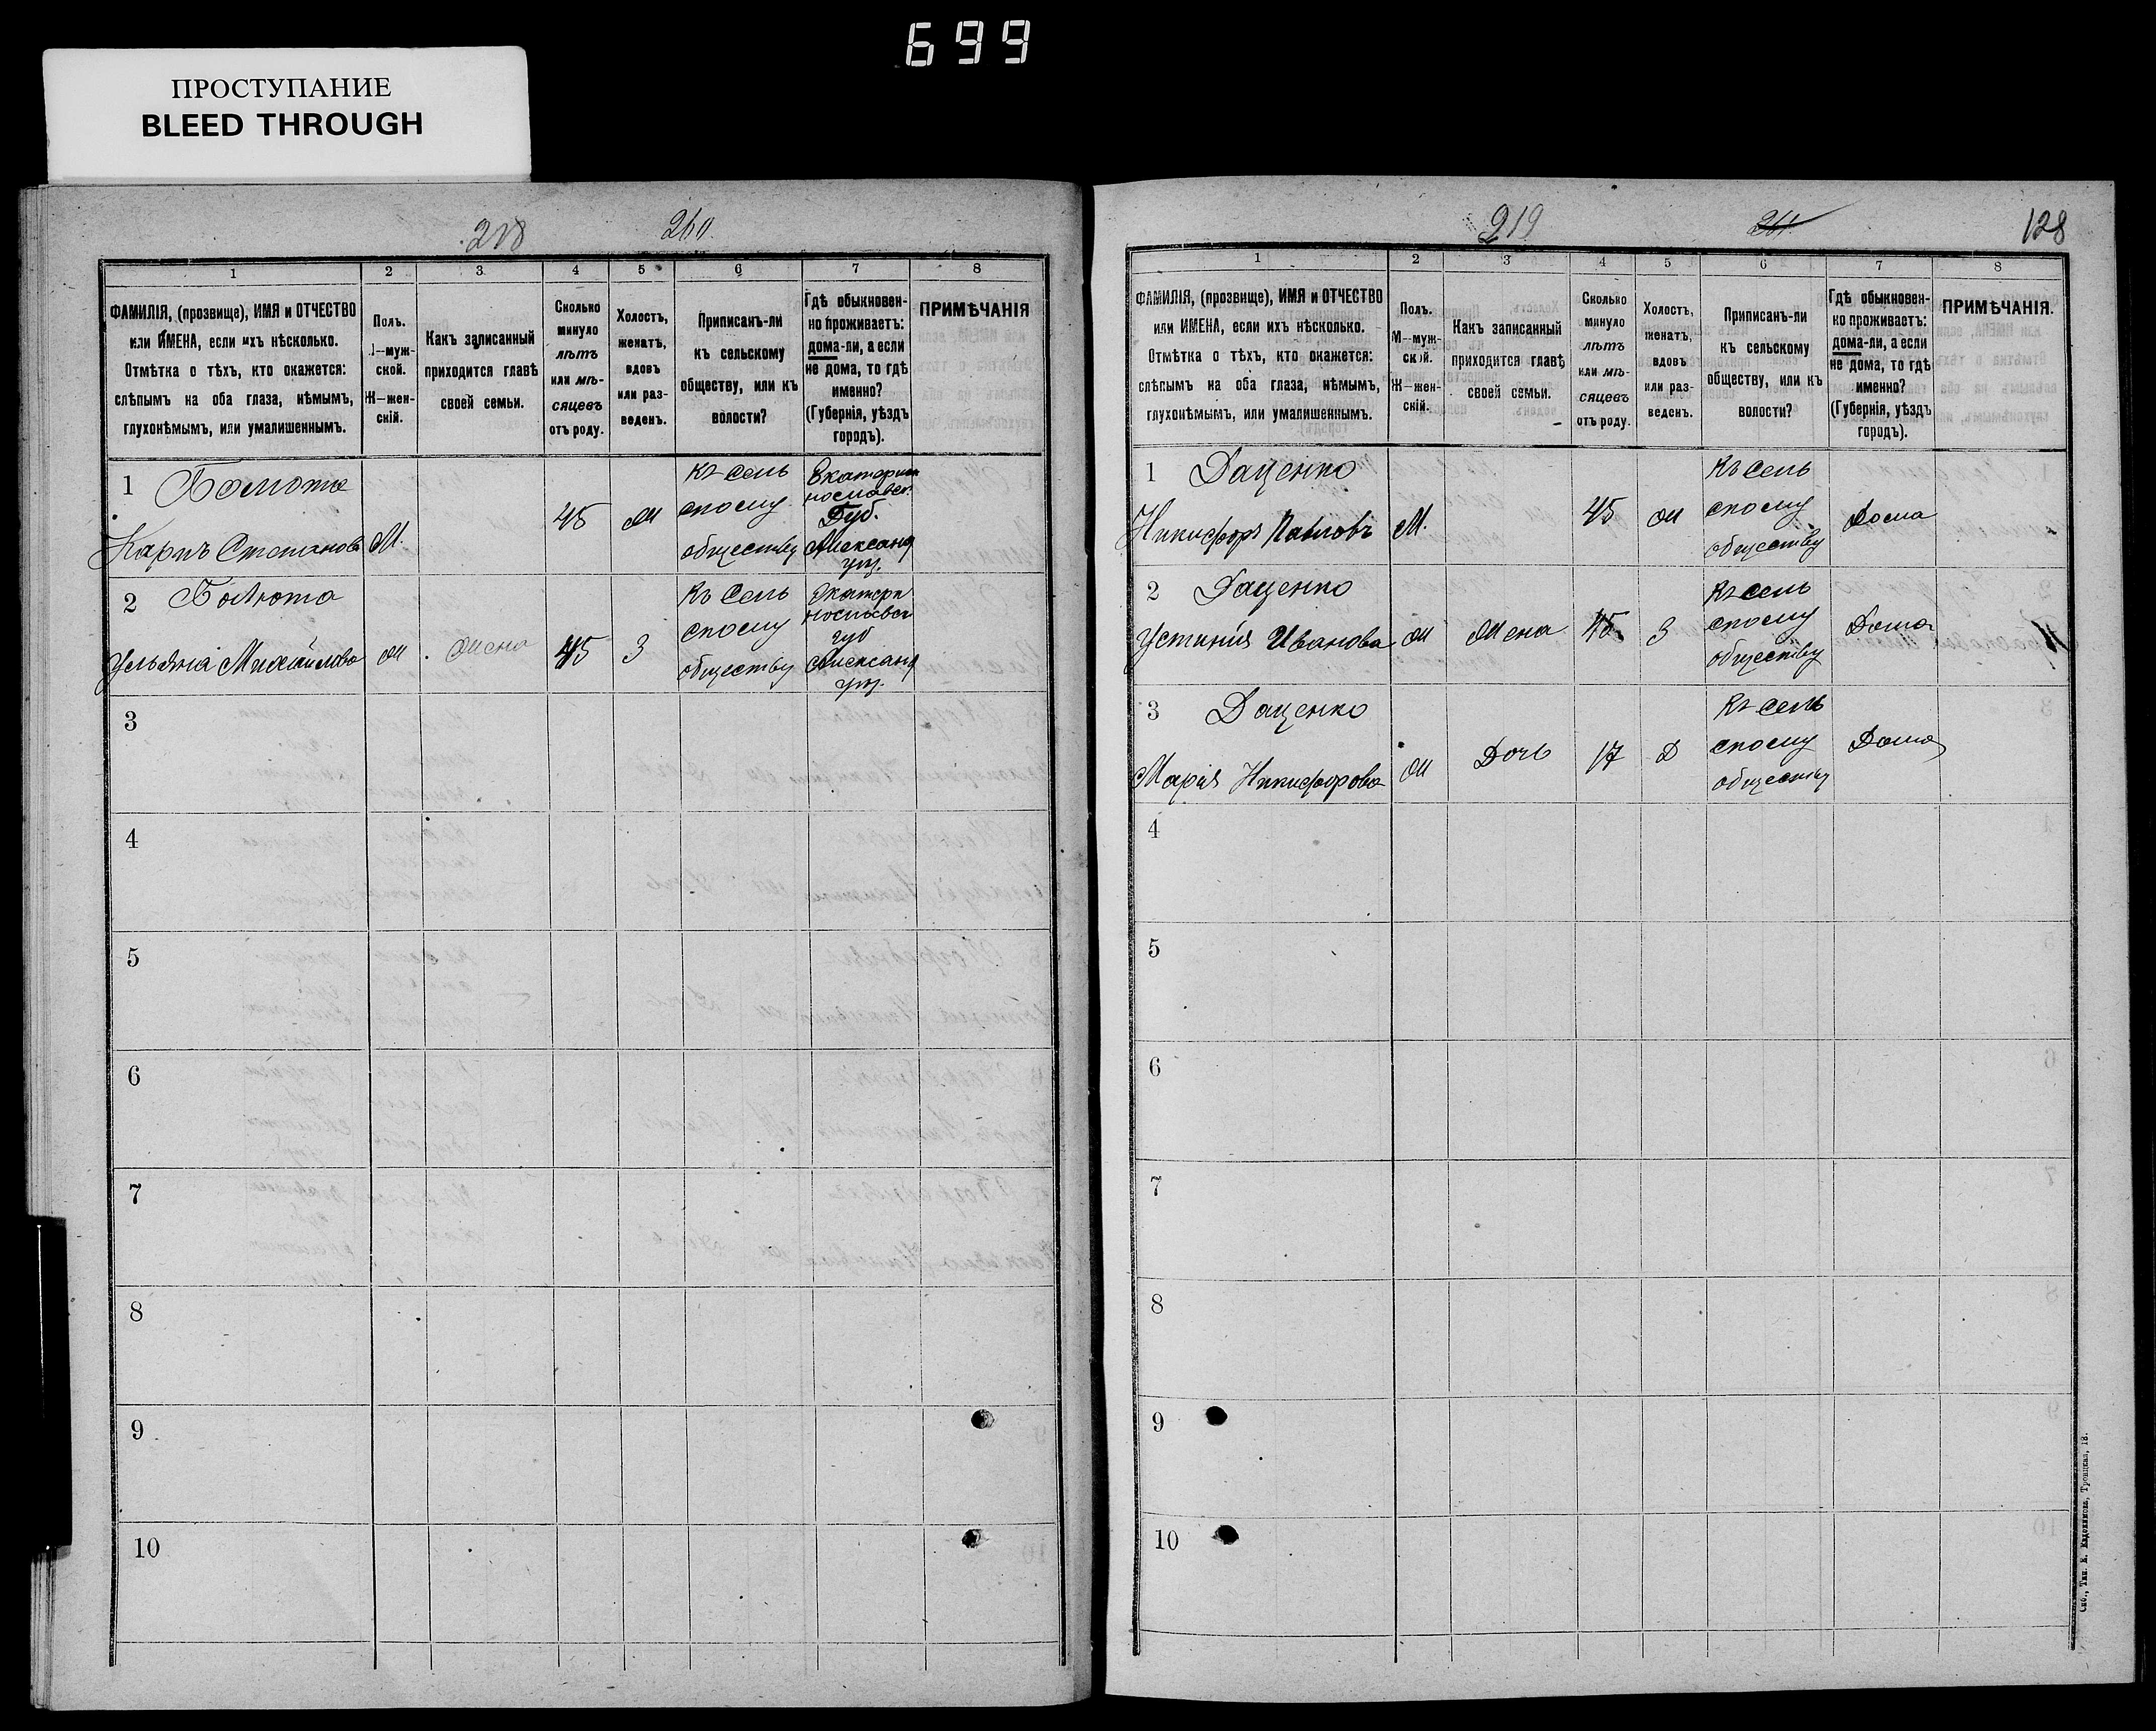 699
ПРОСТУПАНИЕ
BLEED THROUGH
218 260.
1 2 3 4 5 6 7 8
ФАМИЛІЯ, (прозвище), ИМЯ и ОТЧЕСТВО
или ИМЕНА, если ихъ нѣсколько.
Отмѣтка о тѣхъ, кто окажется:
слѣпымъ на оба глаза, нѣмымъ,
глухонѣмымъ, или умалишеннымъ.
Полъ.
М—муж-
ской.
Ж—жен-
скій.
Какъ записанный
приходится главѣ
своей семьи.
Сколько
минуло
лѣтъ
или мѣ-
сяцевъ
отъ роду.
Холостъ,
женатъ,
вдовъ
или раз-
веденъ.
Приписанъ-ли
къ сельскому
обществу, или къ
волости?
Гдѣ обыкновен-
но проживаетъ:
дома-ли, а если
не дома, то гдѣ
именно?
(Губернія, уѣздъ
городъ).
ПРИМѢЧАНІЯ
1
Карпъ Степановъ
М.
45
ж
къ сель
скому
обществу
Екатерин
нославск.
Губ.
Александ
уѣз.
2 Болюта
Ульяна Михайлова
ж
жена
45
З
Къ сель
скому
обществу
Екатери
нославск
губ
Александ
уѣз.
3
4
5
6
7
8
9
10
219 261 128
1 2 3 4 5 6 7 8
ФАМИЛІЯ, (прозвище), ИМЯ и ОТЧЕСТВО
или ИМЕНА, если ихъ нѣсколько.
Отмѣтка о тѣхъ, кто окажется:
слѣпымъ на оба глаза, нѣмымъ,
глухонѣмымъ, или умалишеннымъ.
Полъ.
М—муж-
ской.
Ж—жен-
скій.
Какъ записанный
приходится главѣ
своей семьи.
Сколько
минуло
лѣтъ
или мѣ-
сяцевъ
отъ роду.
Холостъ,
женатъ,
вдовъ
или раз-
веденъ.
Приписанъ-ли
къ сельскому
обществу, или къ
волости?
Гдѣ обыкновен-
но проживаетъ:
дома-ли, а если
не дома, то гдѣ
именно?
(Губернія, уѣздъ
городъ).
ПРИМѢЧАНІЯ.
1 Даценко
Никифоръ Павловъ
М.
45
ж
Къ сель
скому
обществу
Дома
2 Даценко
Устинія Иванова
ж
Жена
45
З
Къ сель
скому
обществу
Дома
3 Даценко
Марія Никифорова
ж
Дочь
17
Д
Къ сель
скому
обществу
Дома
4
5
6
7
8
9
10
Спб., Тип. Е. Евдокимова, Троицкая, 18.